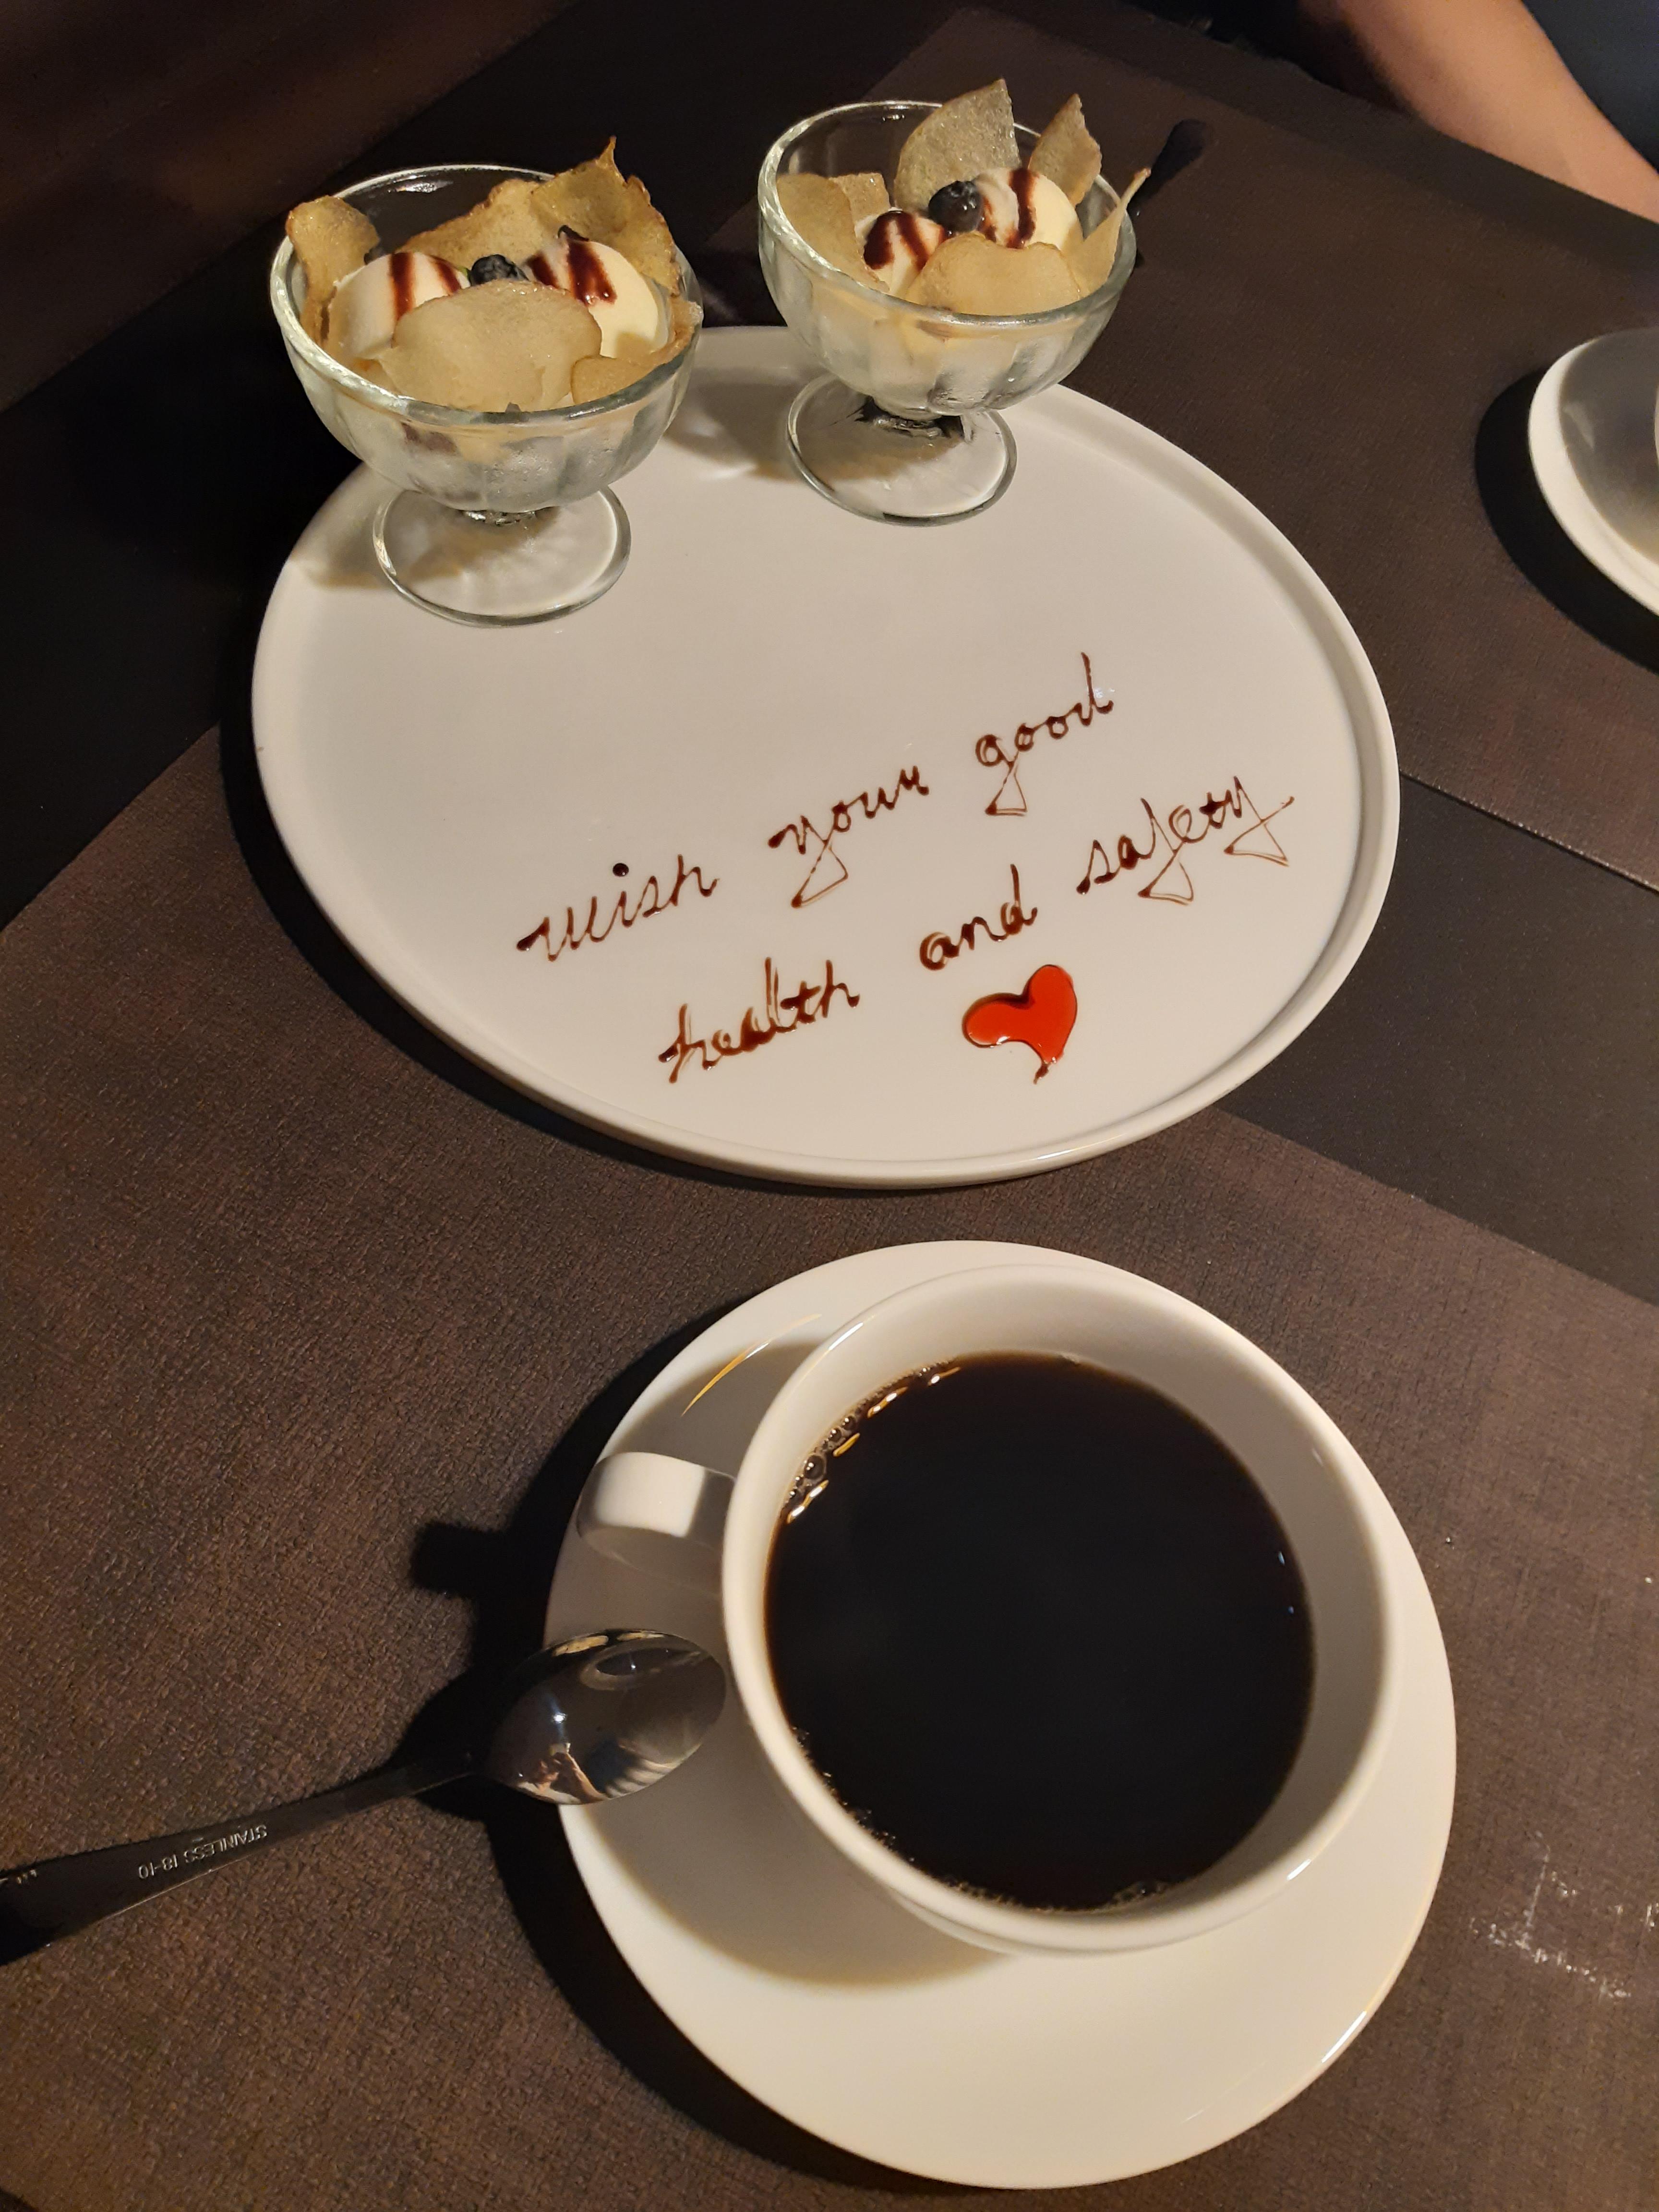 wish your good
health and safety
STAINLESS 18-10